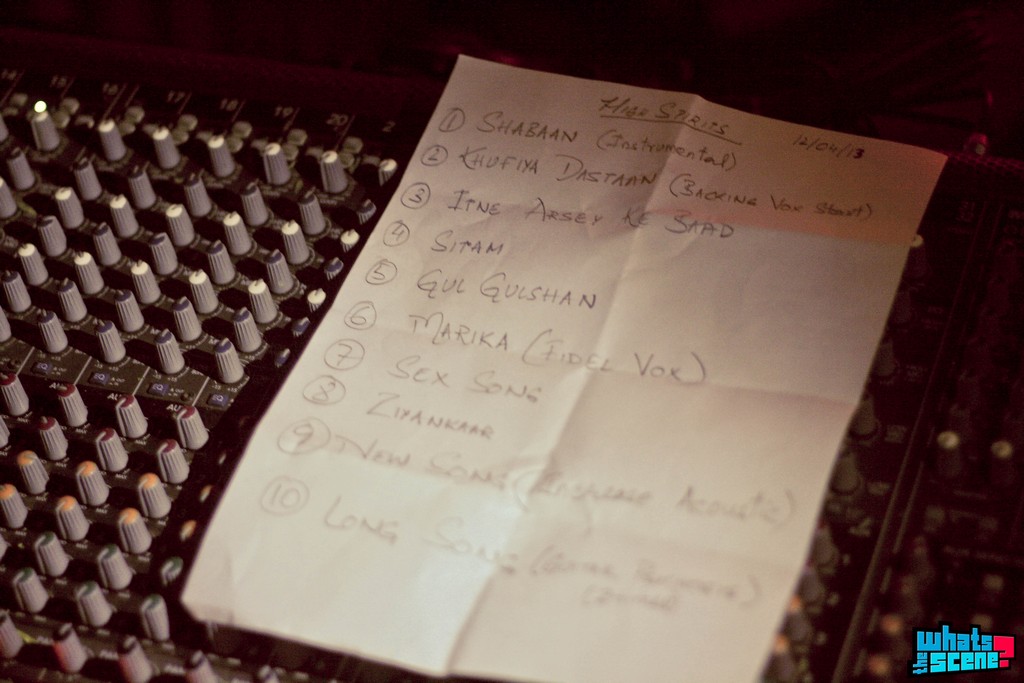 14 15 16 17 18 19 20 2
HIGH SPIRITS
12/04/13
① SHABAAN (Instrumental)
② KHUFIYA DASTAAN (BACKING VOX START)
③ ITNE ARSEY KE BAAD
④ SITAM
⑤ GUL GULSHAN
⑥ MARIKA (FIDEL VOX)
⑦ SEX SONG
⑧ ZIYANKAAR
⑨ NEW SONG ( ACOUSTIC)
⑩ LONG SONG (
whats
the scene?